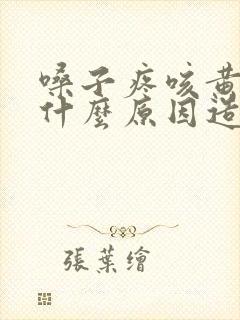 嗓子疼咳黄
什麼原因造
張葉繪